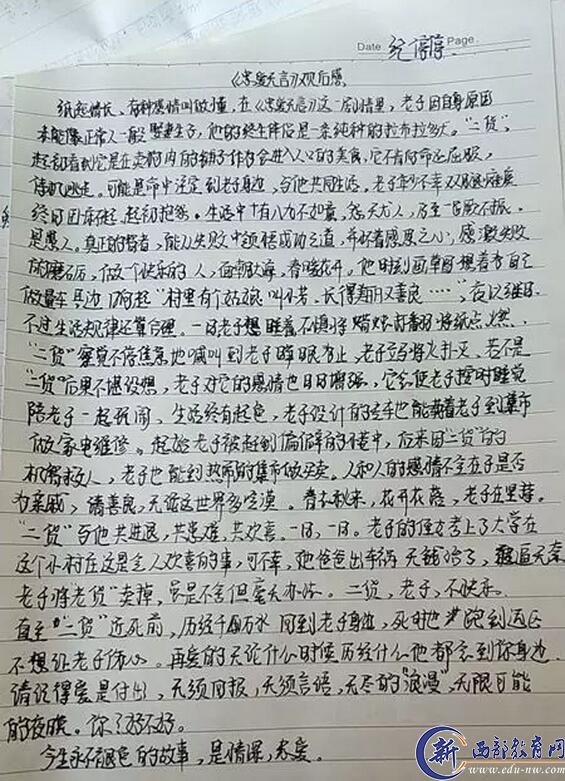 Date 纪婷婷 Page.
《忠爱无言》观后感
纸短情长、有种感情叫做懂，在《忠爱无言》这一剧情里，老子因自身原因
未能像正常人一般娶妻生子，他的终生伴侣是一条纯种的拉布拉多犬。"二货"
起初看到它是在卖狗肉的铺子作为会进入人口的美食，它不肯向命运屈服，
伺机逃走。可能是命中注定到老子身边，与他共同生活，老子年少不幸双腿瘫痪
终日困在床，起初抱怨。生活中十有八九不如意，怨天尤人，乃至一蹶不振，
是愚人。真正的智者，能从失败中领悟成功之道，并怀着感恩之心，感激失败
的磨石历，做一个快乐的人，面朝大海，春暖花开。他时刻画草图想着为自己
做童车 唱起"村里有个姑娘叫小芳、长得美丽又善良……"，夜以继日。
不过生活规律还算合理。一日老子想睡着不慎将蜡烛打翻将纸点燃，
"二货"察觉不停焦急地喊叫到老子睁眼为止，老子立马将火扑灭、若不是
"二货"后果不堪设想，老子对它的感情也日日增强，它会使老子按时睡觉
陪老子一起玩闹、生活终有起色，老子设计的童车也能载着老子到集市
做家电维修。起始老子被赶到偏僻的巷中，后来因"二货"的
机智救人，老子也能到热闹的集市做买卖。人和人的感情不全在于是否
为亲戚，请善良，无论这世界多空漠。春去秋来，花开花落，老子在坚守。
"二货"与他共进退，共患难，共欢喜。一日，一日。老子的侄女考上了大学在
这个小村庄这是全人欢喜的事，可不幸，她爸爸出车祸 无钱治了，被逼无奈
老子将"老货"卖掉，虽是不舍但毫无办法。二货，老子，不快乐。
直至"二货"近死前，历经千山万水 回到老子身边，死时也 跑到远
不想让老子伤心。再爱的无论什么时候历经什么他都会到你身边
请记得爱是付出，无须回报，无须言语，无尽的"浪漫"，无限可能
的夜晚。你 好不好。
今生永不褪色的故事，是情深，忠爱。
新 西部教育网
www.edu-nw.com